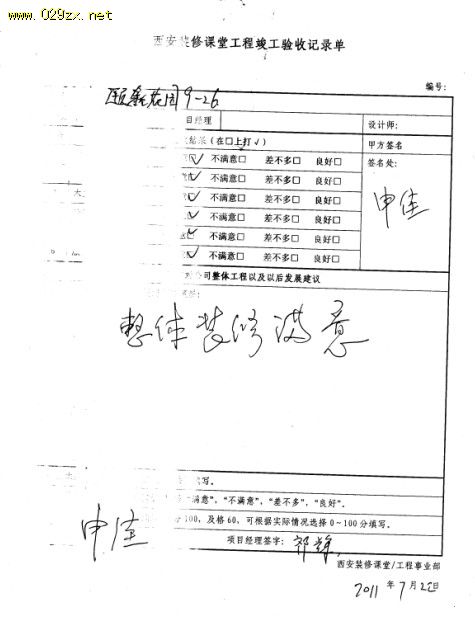 www.029zx.net
西安装修课堂工程竣工验收记录单
编号:
9-26
目经理 设计师:
(在口上打√) 甲方签名
√ 不满意□ 差不多□ 良好□ 签名处:
√ 不满意□ 差不多□ 良好□
√ 不满意□ 差不多□ 良好□ 申佳
√ 不满意□ 差不多□ 良好□
√ 不满意□ 差不多□ 良好□
√ 不满意□ 差不多□ 良好□
公司整体工程以及以后发展建议
整体装修满意
填写。
满意”,“不满意”,“差不多”,“良好”。
100,及格60,可根据实际情况选择0~100分填写。
申佳
项目经理签字:
西安装修课堂/工程事业部
2011 年 7 月 2 日